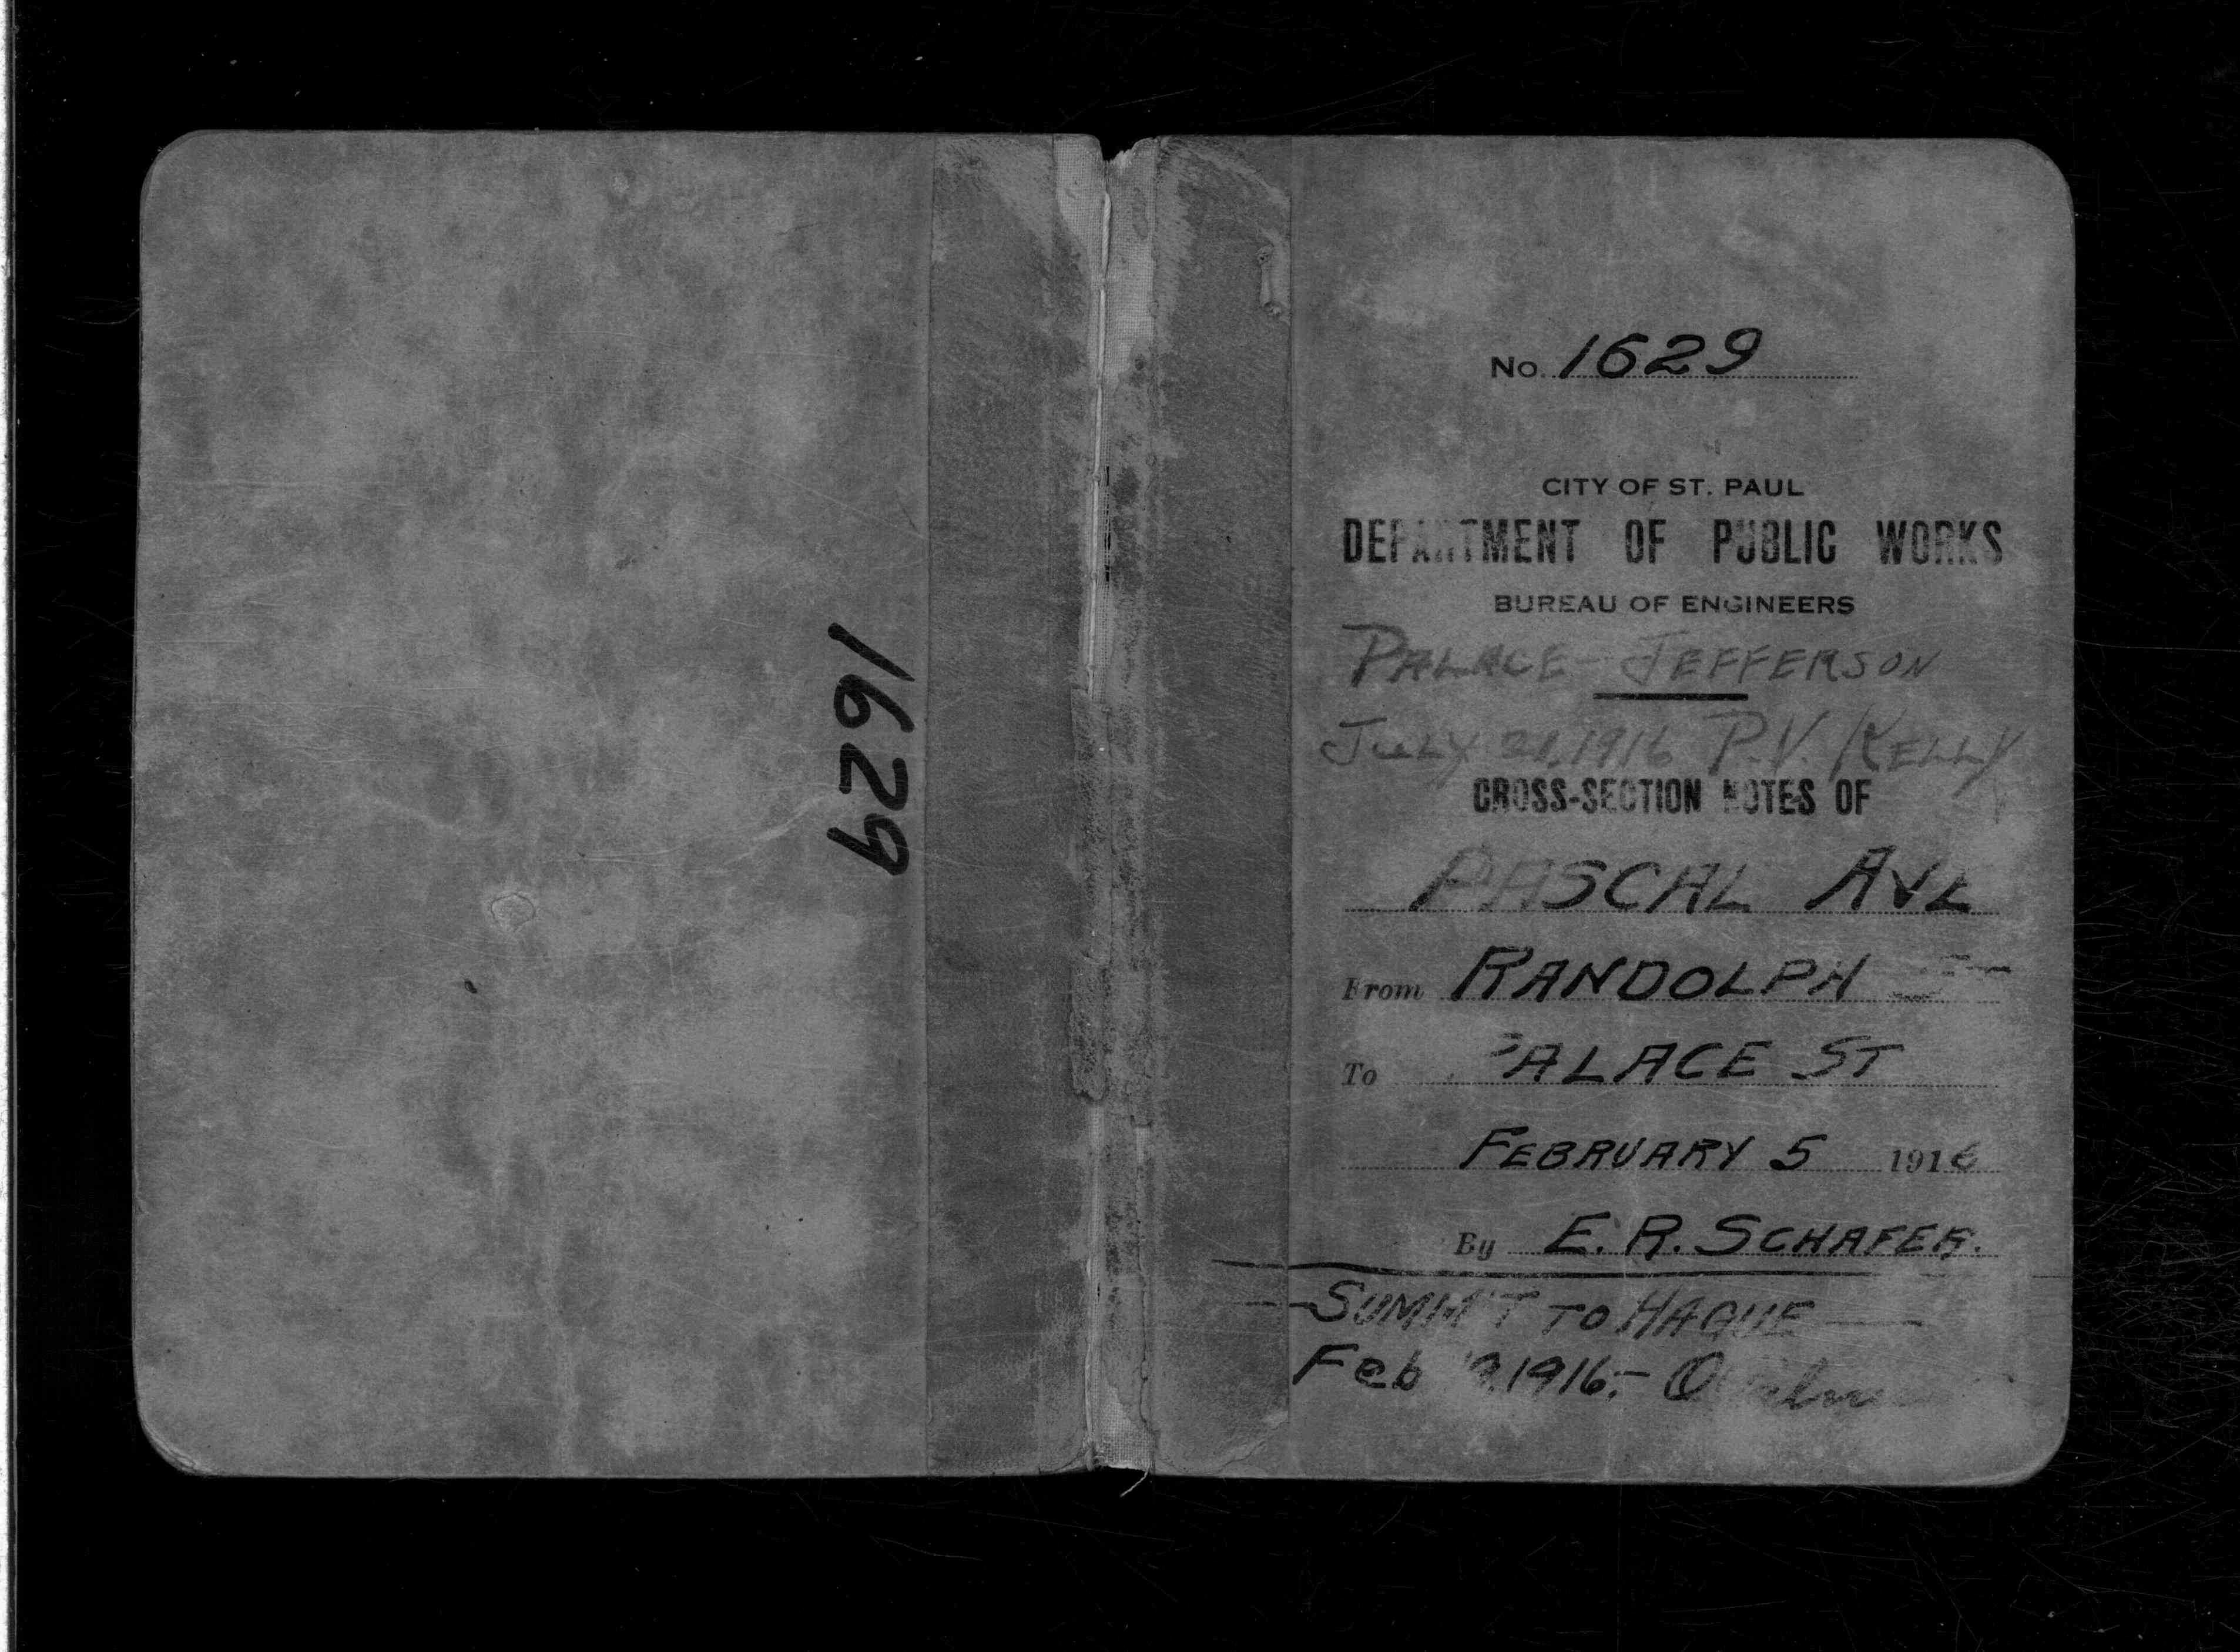 1629
No. 1629
CITY OF ST. PAUL
DEPARTMENT OF PUBLIC WORKS
BUREAU OF ENGINEERS
PALACE - JEFFERSON
JULY 1916 P.V. KELLY
CROSS-SECTION NOTES OF
PASCAL AVE
From RANDOLPH ST
To PALACE ST
FEBRUARY 5 1916
By E. R. SCHAFER.
SUMMIT TO HAGUE
Feb 1916:-